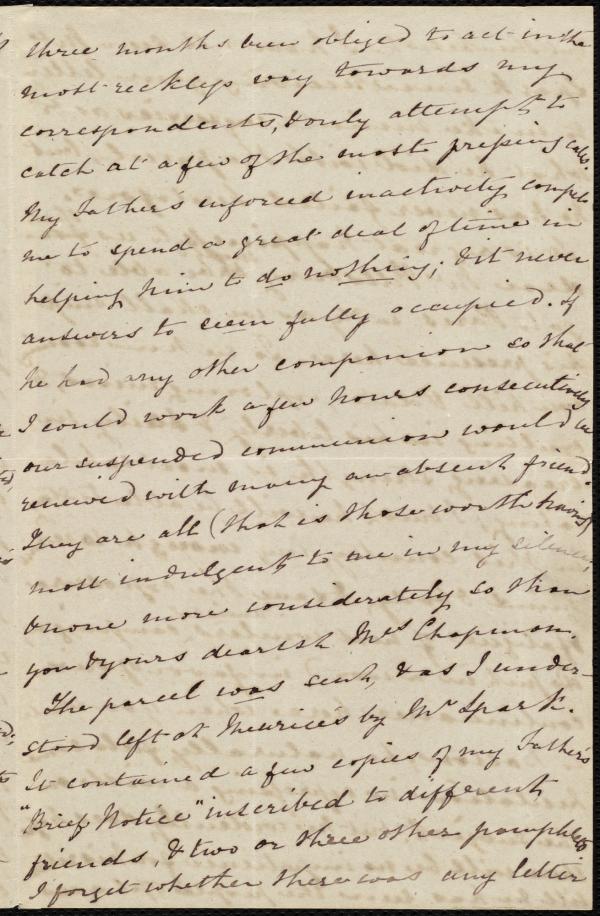 three months been obliged to act in the
most reckless way towards my
correspondents, & only attempt to
catch at a few of the most pressing calls.
My Father's enforced inactivity compels
me to spend a great deal of time in
helping him to do nothing; & it never
answers to seem fully occupied. If
he had any other companion so that
I could work a few hours consecutively
our suspended communion would be
renewed with many an absent friend.
They are all (that is those worth having)
most indulgent to me in my silence,
& none more considerately so than
you & yours dearest Mrs Chapman.
The parcel was sent, & as I under-
stood left at Meurice's by Mr Spark.
It contained a few copies of my Father's
"Brief Notice" inscribed to different
friends, & two or three other pamphlets
I forget whether there was any letter